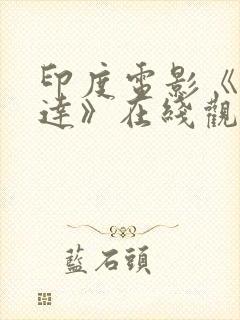 印度電影《
達》在綫觀
藍石頭